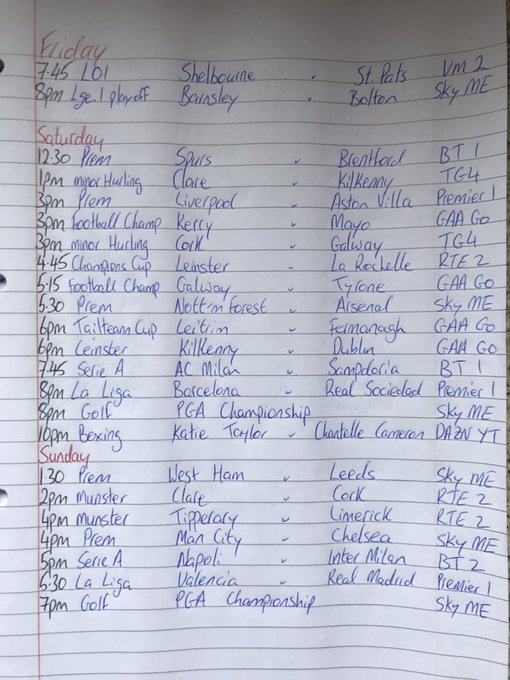 Friday
7.45 LOI Shelbourne v St. Pats VM 2
8pm Lge.1 playoff Barnsley v Bolton Sky ME
Saturday
12:30 Prem Spurs v Brentford BT 1
1pm minor Hurling Clare v Kilkenny TG4
3pm Prem Liverpool v Aston Villa Premier 1
3pm Football Champ Kerry v Mayo GAA GO
3pm minor Hurling Cork v Galway TG4
4.45 Champions Cup Leinster v La Rochelle RTE 2
5.15 Football Champ Galway v Tyrone GAA GO
5.30 Prem Nott'm Forest v Arsenal Sky ME
6pm Tailteam Cup Leitrim v Fermanagh GAA GO
6pm Leinster Kilkenny v Dublin GAA GO
7.45 Serie A AC Milan v Sampdoria BT 1
8pm La Liga Barcelona v Real Sociedad Premier 1
8pm Golf PGA Championship Sky ME
10pm Boxing Katie Taylor v Chantelle Cameron DAZN YT
Sunday
1.30 Prem West Ham v Leeds Sky ME
2pm Munster Clare v Cork RTE 2
4pm Munster Tipperary v Limerick RTE 2
4pm Prem Man City v Chelsea Sky ME
5pm Serie A Napoli v Inter Milan BT 2
5.30 La Liga Valencia v Real Madrid Premier 1
7pm Golf PGA Championship Sky ME